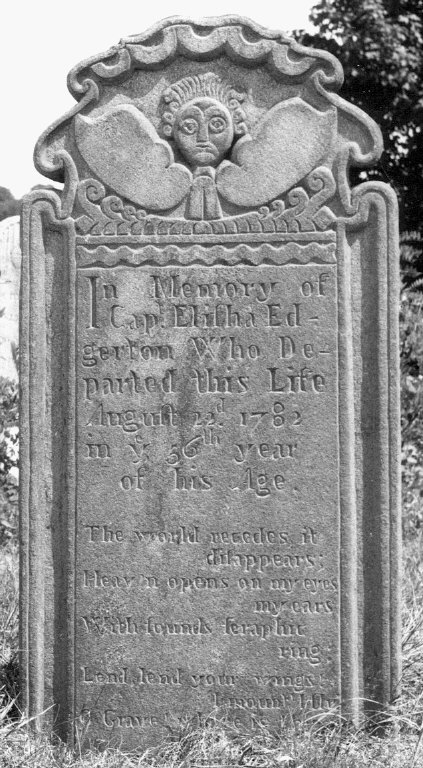 In Memory of
Cap. Elisha Ed-
gerton Who De-
parted this Life
August 22d. 1782
in ye. 56th year
of his Age.
The world recedes it
disappears;
Heav'n opens on my eyes
my ears
With sounds seraphic
ring:
Lend, lend your wings:
I mount I fly
O Grave